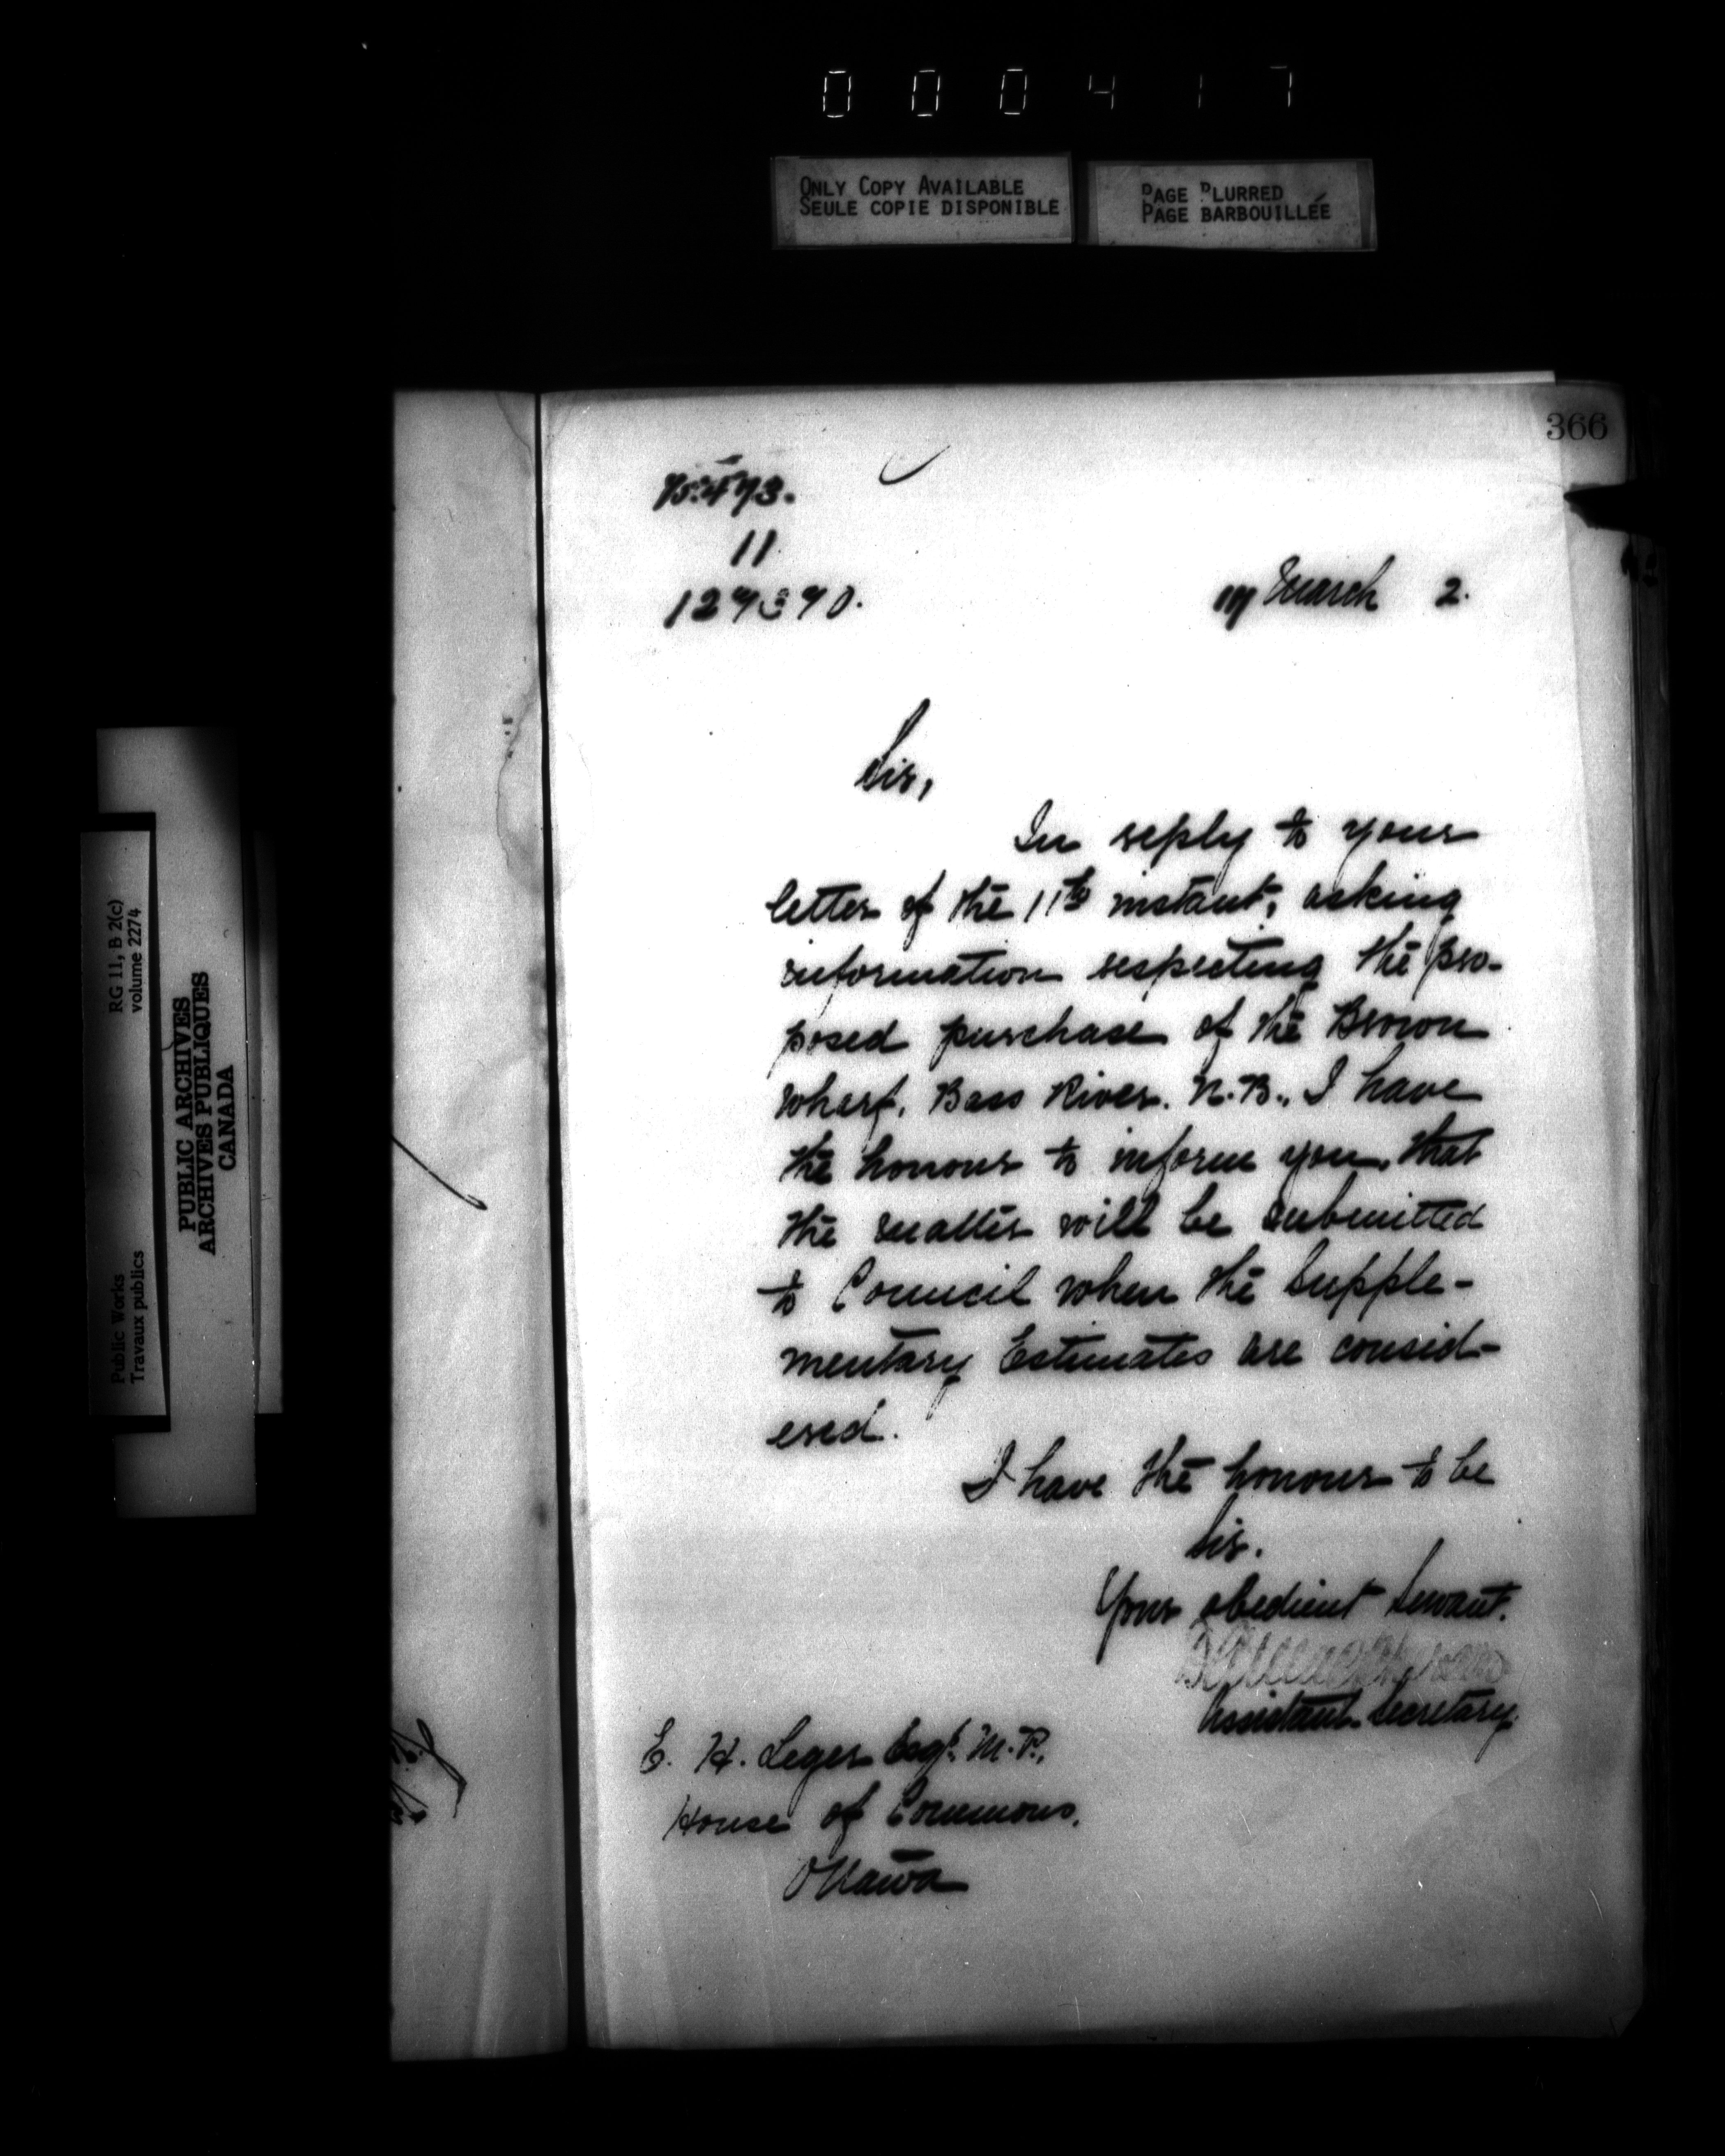 000417
ONLY COPY AVAILABLE
SEULE COPIE DISPONIBLE
PAGE BLURRED
PAGE BARBOUILLÉE
366
11
March 2.
Sir,
In reply to your
letter of the 11th instant, asking
information respecting the pro-
posed purchase of the Brown
Wharf, Bass River, N.B., I have
the honour to inform you, that
the matter will be submitted
to Council when the Supple-
mentary Estimates are consid-
ered.
I have the honour to be
Sir.
Your obedient Servant.
Assistant Secretary.
E. H. Leger Esqr. M.P.,
House of Commons,
Ottawa
Public Works
Travaux publics
RG 11, B 2(c)
volume 2274
PUBLIC ARCHIVES
ARCHIVES PUBLIQUES
CANADA